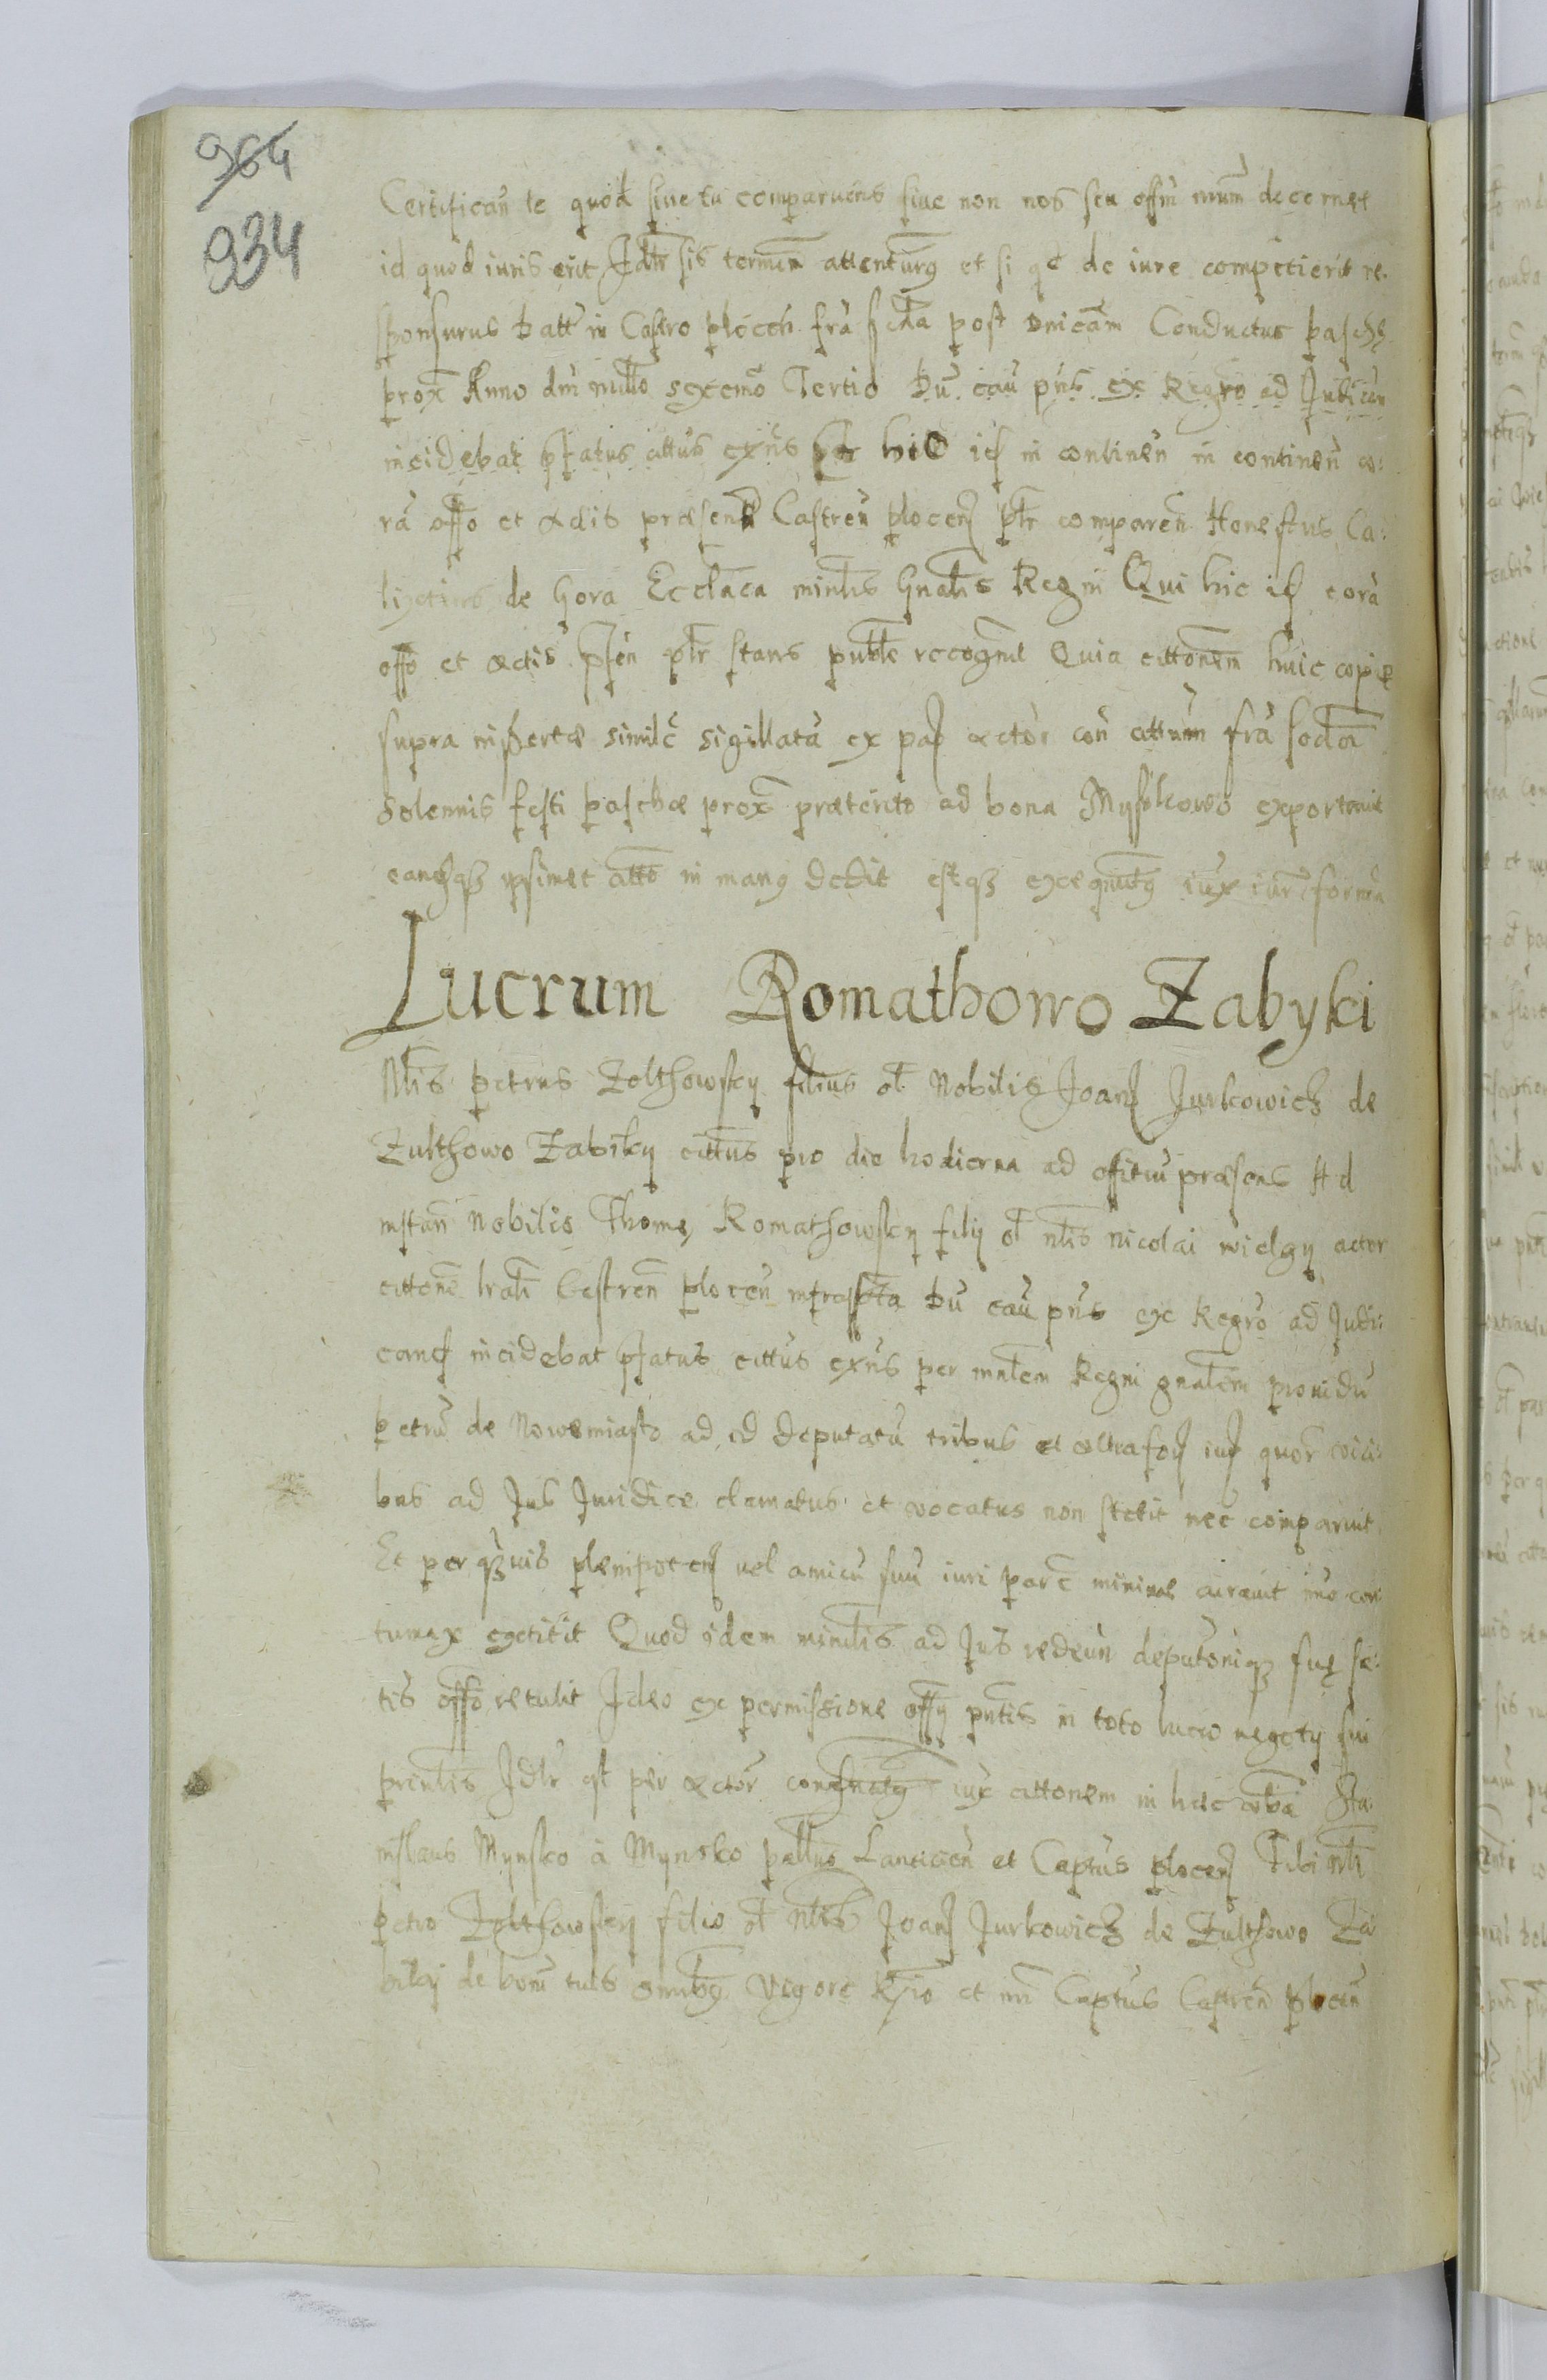 964
934
Certifican te quod siue tu comparueris siue non nos seu offm nrum decernet
id quod iuris erit Idtr sis termin attenturg et si qd de iure competierit re.
sponsurus Datt in Castro plocen fra scda post dnicam Conductus paschę
prox Anno dni millo sexcemo Tertio Du cau pns ex Regro ad Judican
incidebat pfatus cittus exns hic in continen in continen co:
ra offo et actis præsen Castren plocen ptr comparen Honestus Ca:
de Gora Ecclaca minlis Gnalis Regni Qui hic corà
offo et actis psen ptr stans puble recognit Quia cittonem huic copiæ
supra insertæ simile sigillatà ex pas actor con cittum frà
solennis festi paschæ prox præterito ad bona Myskowo exportauit
eandqz ipsimet citto in mang dedit estqz exequutg iux iuris formà
Lucrum Romathowo Zabyki
Nlis petrus Zolthowsky filius ol Nobilis Joan Jurkowicz de
Zulthowo Zabiky cittus pro die hodierna ad offitiu præsens Ad
instan Nobilis Thomę Romathowsky filij ol nlis Nicolai wielgy actor
cittone lrali Castren plocen infrascta Du cau pns ex Regro ad Judi:
cand incidebat pfatus cittus exns per mnlem Regni gnalem prouidu
petru de Nowemiasto ad id deputatu tribus et ultra quor
bus ad Jus Juridice clamatus et vocatus non stetit nec comparuit
Et per qzuis plenipoten vel amicu suu iuri pare minime curauit imo con
tumax extitit Quod idem minlis ad Jus redeun deputoniqz suę sa:
tis offo retulit Ideo ex permissione offy pntis in toto lucro negoty sui
Idtr qd per actor iux cittonem in hæc vba Sta:
nislaus Mynsko à Mynsko pallns Lancicien et Captus plocen Tibi nli
petro Zolthowsky filio ol nlis Joan Jurkowicz de Zulthowo Za
biky de bonis tuis omnibg Vigore Regio et nri Captus Castren plocen